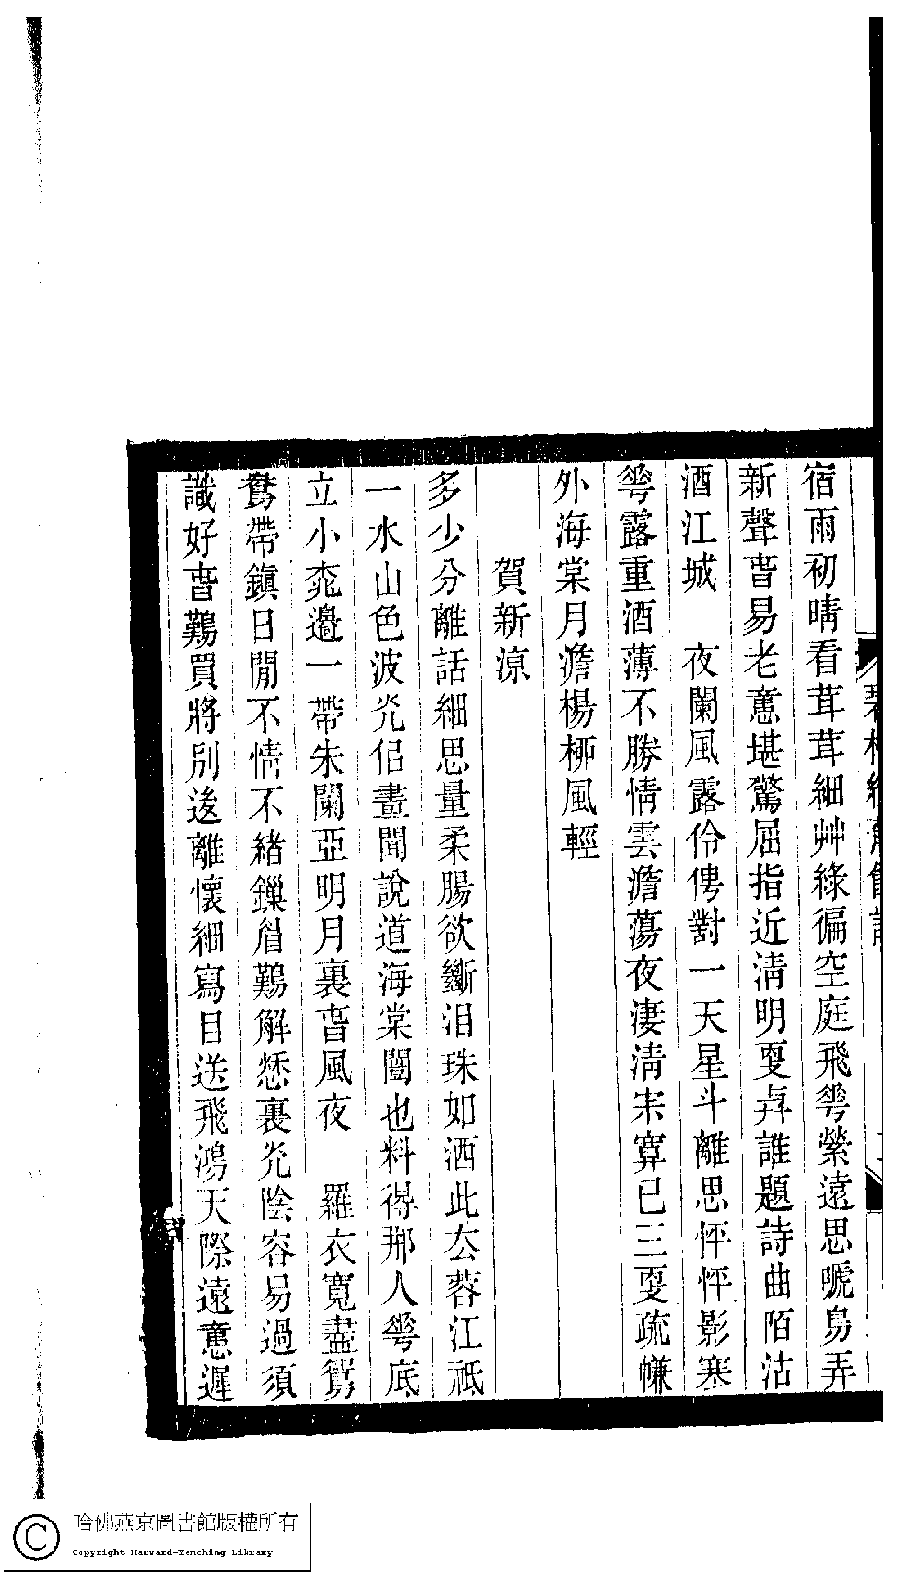 宿雨初晴看茸茸細艸綠徧空庭飛𠌶縈遠思唬鳥弄
新聲旾易老意堪驚屈指近清明㪅弄誰題詩曲陌沽
酒江城　夜闌風露伶俜對一天星斗離思怦怦影寒
𠌶露重酒薄不勝情雲澹蕩夜淒清宋寞已三㪅疏㡘
外海棠月澹楊桺風輕
賀新涼
多少分離話細思量柔腸欲㡭泪珠如洒此厺蓉江祇
一水山色波灮佀畫聞說道海棠開也料得那人𠌶底
立小窕邊一帶朱闌亞明月裏旾風夜　羅衣寬盡鴛
鴦帶鎮日閒不情不緒鏁眉鷄解愁裏灮陰容易過須
識好旾鷄買將別後離懷細寫目送飛鴻天際遠意遲
哈佛燕京圖書館版權所有
Copyright Harvard-Yenching Library